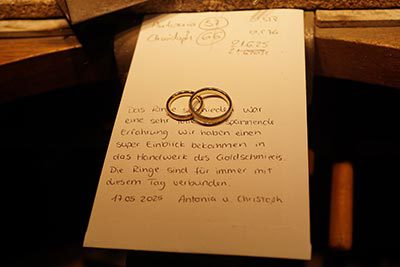 Antonia 57
Christoph 66
21.6.25
Das Ringe schmieden war
eine sehr spannende
Erfahrung. Wir haben einen
super Einblick bekommen in
das Handwerk des Goldschmieds.
Die Ringe sind für immer mit
diesem Tag verbunden.
17.05.2025 Antonia u. Christoph